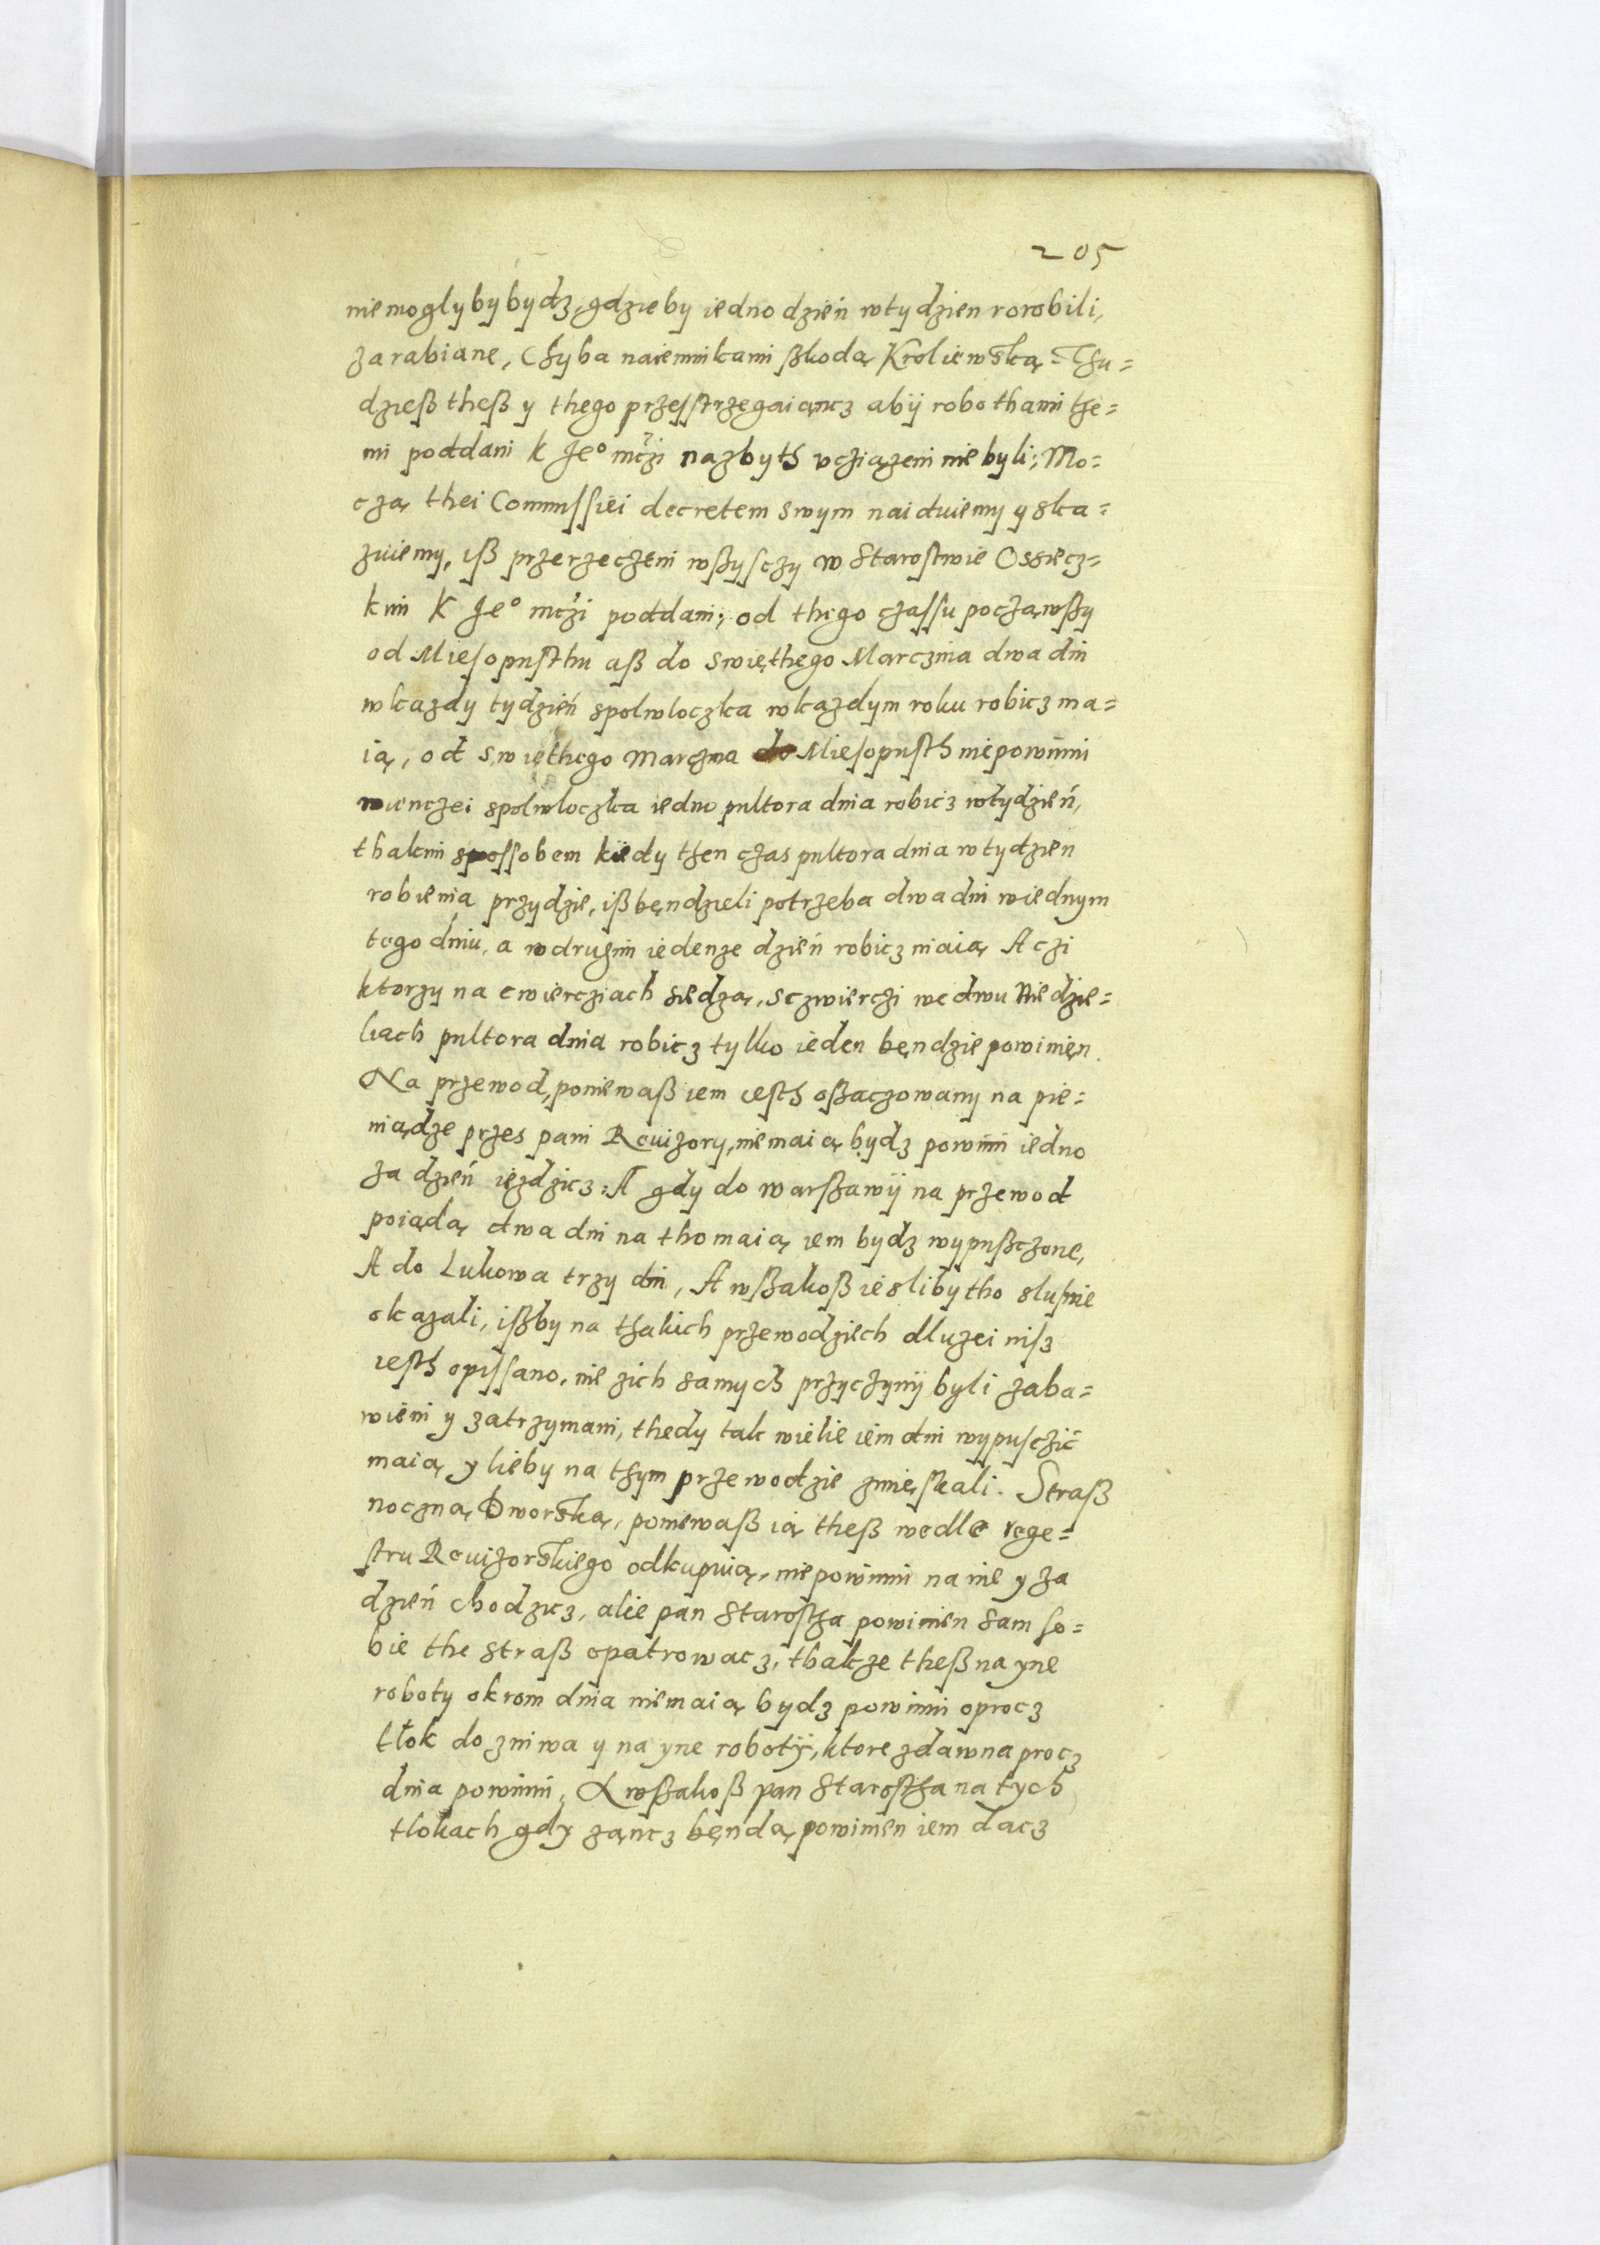 205
niemoglyby bydz, gdzieby iedno dzień wtydzien rorobili,
zarabiane, Chyba naiemnikami ßkodą Kroliewską = Thu=
dzieß theß y thego przesstrzęgaiącz abÿ robothami the=
mi poddani K Je° mczi nazbyth vcziązeni nie byli; Mo=
czą thei Commissiei decretem swym naiduiemy y ska=
zuiemy, iß przerzeczeni wßysczy w Starostwie Ossiecz=
kim K Je° mczi poddani; od thego czassu poczawßy
od Miesopusthu aß do swięthego Marczina dwa dni
wkazdy tydzień spolwloczka wkazdym roku robicz ma=
ią, od swięthego Marczina do Miesopusth niepowinni
wienczei spolwloczka iedno pultora dnia robicz wtydzień,
thakim spossobem kiedy then czas pultora dnia wtydzien
robienia przydzie, iß bęndzieli potrzeba dwa dni wiednym
tego dniu, a wdrugim iedenze dzień robicz maią A czi
ktorzy na cwierciach siedzą, sczwierczi we dwu Niedzie=
liach pultora dnia robicz tylko ieden bęndzie powinięn.
Na przewod, poniewaß iem iesth oßaczowany na pie=
niądze przes pani Reuizory, niemaią bydz powinni iedno
za dzień iezdzicz: A gdy do warßawÿ na przewod
poiądą dwa dni na tho maią iem bydz wypußczone,
A do Lukowa trzy dni, A wßakoß iesliby tho slußnie
okazali, ißby na thakich przewodziech dluzei nisz
iesth opissano, nie zich samych przyczynÿ byli zaba=
wieni y zatrzymani, thedy tak wielie iem dni wypusczić
maią y lieby na thym przewodzie zmięskali. Straß
noczną Dworską, poniewaß ią theß wedle rege=
stru Reuizorskiego odkupuią, niepowinni na nie y za
dzień chodzicz, alie pan Starostha powinien sam so=
bie the straß opatrowacz, thakze theß na yne
roboty okrom dnia niemaią bydz powinni oprocz
tłok do zniwa y na yne robotÿ, ktore zdawna procz
dnia powinni, A wßakoß pan Starostha na tych
tlokach gdy ząncz bęndą powinien iem dacz